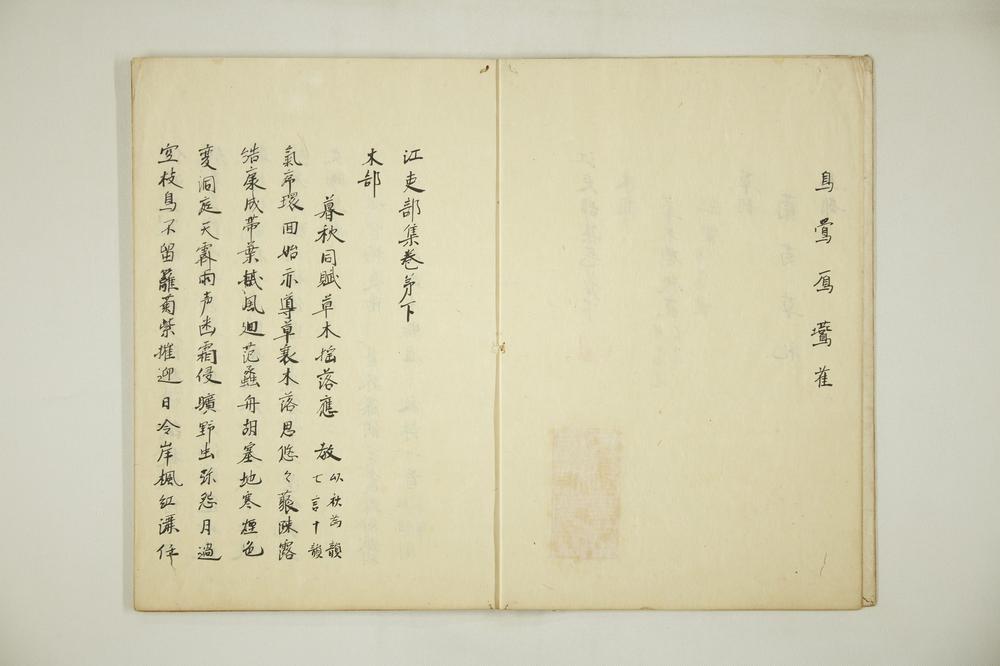 鳥 鶯 鴈 鷺 雀
江吏部集巻第下
木部
暮秋同賦草木揺落應 教 以秋為韻 七言十韻
氣序環回始亦尊草衰木落思悠々藂踈露
結康成帯葉 風廻范蠡舟胡塞地寒煙色
変洞庭天霽雨声幽霜侵曠野虫弥怨月過
空枝鳥不留籬菊紫摧迎日冷岸楓紅